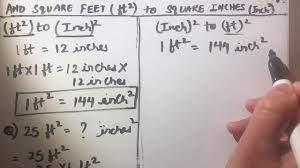 AND SQUARE FEET (ft²) to SQUARE INCHES (Inch)²
(ft)² to (Inch)²
1 ft = 12 inches
1 ft X 1 ft = 12 inches X
12 inches
1 ft² = 144 inch²
Q) 25 ft² = ? inches²
= 25 ft²
(Inch)² to (ft)²
1 ft² = 144 inch²